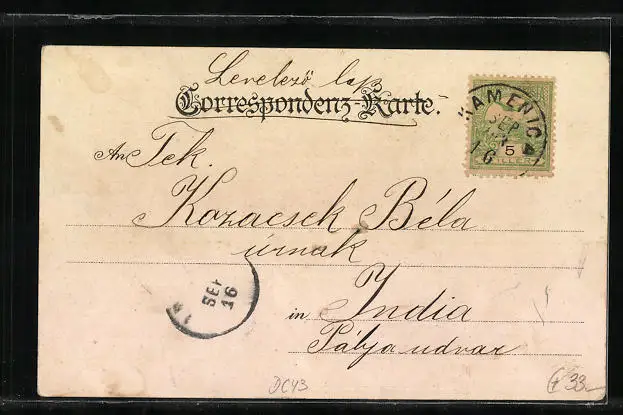 Levelező lap
Correspondenz-Karte.
KAMENIC
SEP
16
5
FILLÉR
An Tek.
Kozacsek Béla
úrnak
in India
Pályaudvar
SEP
16
DC43
33